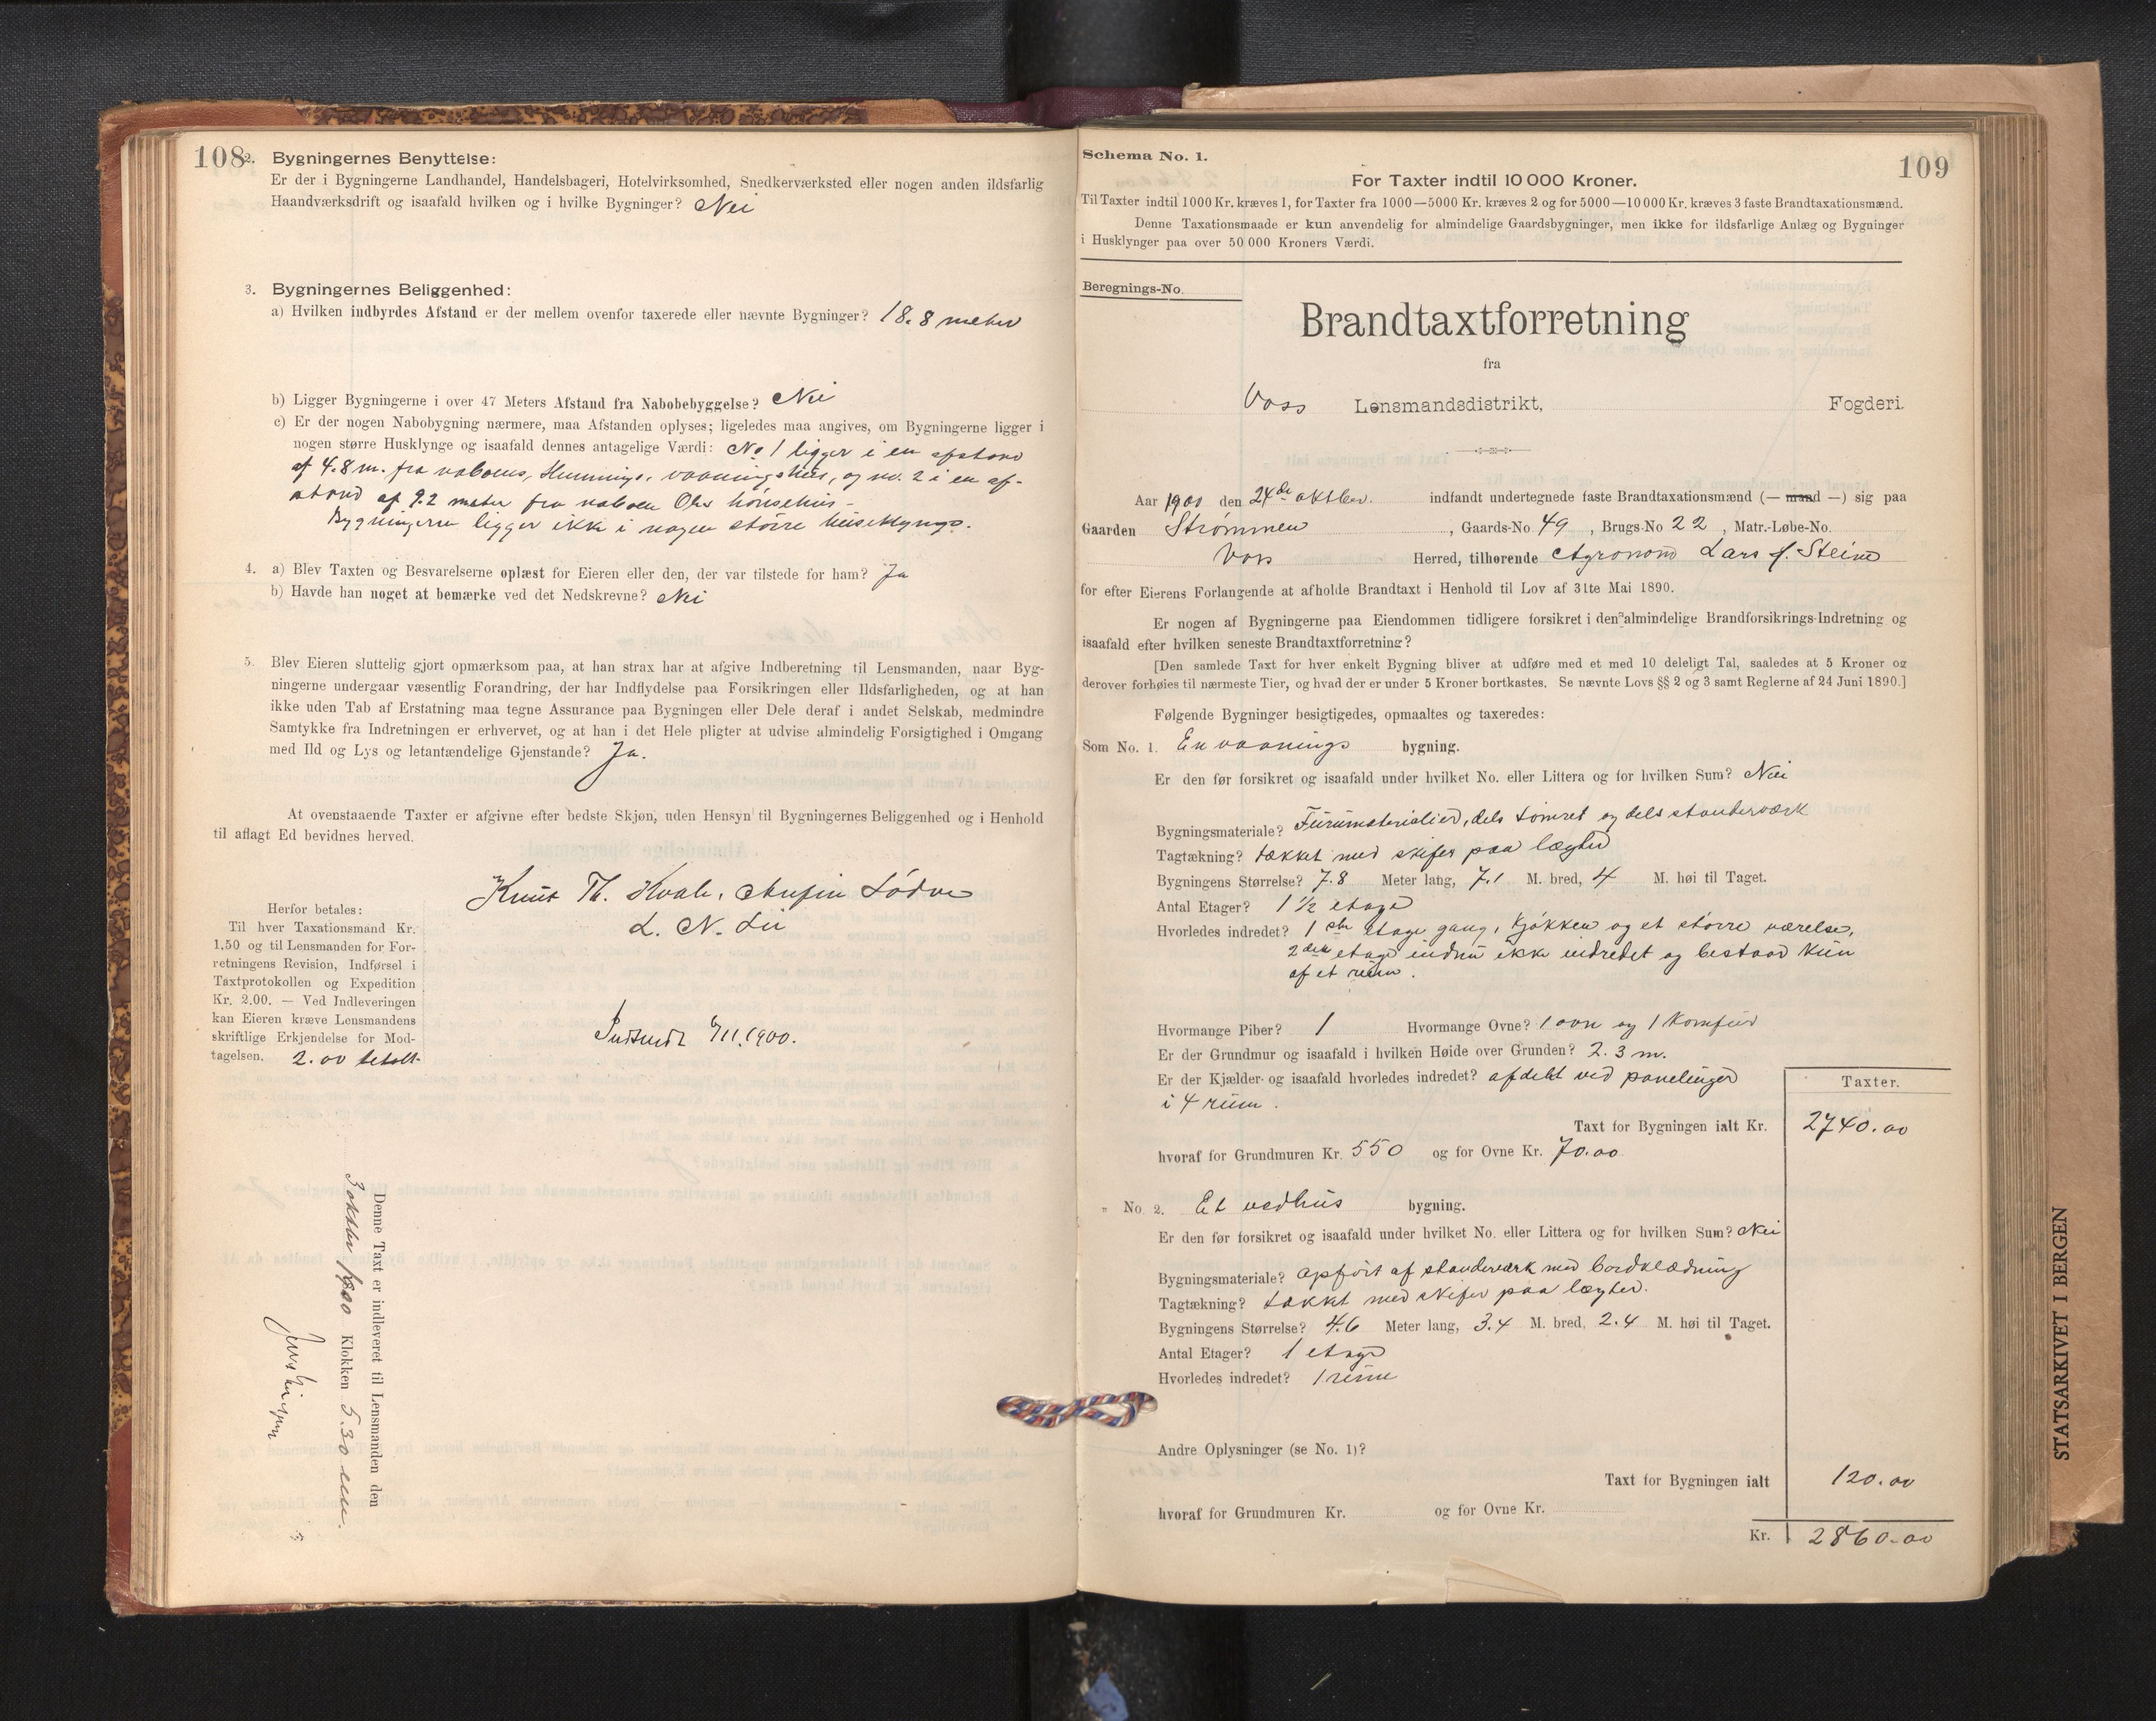 108
2. Bygningernes Benyttelse:
Er der i Bygningerne Landhandel, Handelsbageri, Hotelvirksomhed, Snedkerværksted eller nogen anden ildsfarlig
Haandværksdrift og isaafald hvilken og i hvilke Bygninger? Nei
3. Bygningernes Beliggenhed:
a) Hvilken indbyrdes Afstand er der mellem ovenfor taxerede eller nævnte Bygninger? 18.8 meter
b) Ligger Bygningerne i over 47 Meters Afstand fra Nabobebyggelse? Nei
c) Er der nogen Nabobygning nærmere, maa Afstanden oplyses; ligeledes maa angives, om Bygningerne ligger i
nogen større Husklynge og isaafald dennes antagelige Værdi: No 1 ligger i en afstand
af 4.8 m. fra naboens, Hemmings, vaaningshus, og no. 2 i en af-
stand af 9.2 meter fra naboen Ols hönsehus -
Bygningerne ligger ikke i nogen större huseklynge.
4. a) Blev Taxten og Besvarelserne oplæst for Eieren eller den, der var tilstede for ham? Ja
b) Havde han noget at bemærke ved det Nedskrevne? Nei
5. Blev Eieren sluttelig gjort opmærksom paa, at han strax har at afgive Indberetning til Lensmanden, naar Byg-
ningerne undergaar væsentlig Forandring, der har Indflydelse paa Forsikringen eller Ildsfarligheden, og at han
ikke uden Tab af Erstatning maa tegne Assurance paa Bygningen eller Dele deraf i andet Selskab, medmindre
Samtykke fra Indretningen er erhvervet, og at han i det Hele pligter at udvise almindelig Forsigtighed i Omgang
med Ild og Lys og letantændelige Gjenstande? Ja.
At ovenstaaende Taxter er afgivne efter bedste Skjøn, uden Hensyn til Bygningernes Beliggenhed og i Henhold
til aflagt Ed bevidnes herved.
Knut Th. Kvale,
L. N. Lii
Herfor betales:
Til hver Taxationsmand Kr.
1,50 og til Lensmanden for For-
retningens Revision, Indførsel i
Taxtprotokollen og Expedition
Kr. 2,00. — Ved Indleveringen
kan Eieren kræve Lensmandens
skriftlige Erkjendelse for Mod-
tagelsen. 2.00 betalt
Indsendt 6/11.1900.
Denne Taxt er indleveret til Lensmanden den
3 oktbr 1900 Klokken 5.30 em.
Schema No. 1.
109
For Taxter indtil 10 000 Kroner.
Til Taxter indtil 1000 Kr. kræves 1, for Taxter fra 1000—5000 Kr. kræves 2 og for 5000—10 000 Kr. kræves 3 faste Brandtaxationsmænd.
Denne Taxationsmaade er kun anvendelig for almindelige Gaardsbygninger, men ikke for ildsfarlige Anlæg og Bygninger
i Husklynger paa over 50 000 Kroners Værdi.
Beregnings-No.
Brandtaxtforretning
fra
Voss Lensmandsdistrikt, Fogderi.
Aar 1900 den 24de oktber. indfandt undertegnede faste Brandtaxationsmænd (— mand —) sig paa
Gaarden Strömmen, Gaards-No 49, Brugs-No 22, Matr.-Løbe-No.
Voss Herred, tilhørende Agronom Lars J. Steine
for efter Eierens Forlangende at afholde Brandtaxt i Henhold til Lov af 31te Mai 1890.
Er nogen af Bygningerne paa Eiendommen tidligere forsikret i den almindelige Brandforsikrings-Indretning og
isaafald efter hvilken seneste Brandtaxtforretning?
[Den samlede Taxt for hver enkelt Bygning bliver at udføre med et med 10 deleligt Tal, saaledes at 5 Kroner og
derover forhøies til nærmeste Tier, og hvad der er under 5 Kroner bortkastes. Se nævnte Lovs §§ 2 og 3 samt Reglerne af 24 Juni 1890.]
Følgende Bygninger besigtigedes, opmaaltes og taxeredes:
Som No. 1. En vaanings bygning.
Er den før forsikret og isaafald under hvilket No. eller Littera og for hvilken Sum? Nei
Bygningsmateriale? Furumaterialier, dels tömret og dels standerværk
Tagtækning? tækket med skifer paa lægter
Bygningens Størrelse? 7.8 Meter lang, 7.1 M. bred, 4 M. høi til Taget.
Antal Etager? 1 1/2 etage
Hvorledes indredet? 1ste etage gang, kjökken og et större værelse,
2den etage endnu ikke indredet og bestaar kun
af et rum.
Hvormange Piber? 1 Hvormange Ovne? 1 ovn og 1 komfur
Er der Grundmur og isaafald i hvilken Høide over Grunden? 2.3 m.
Er der Kjælder og isaafald hvorledes indredet? afdelt ved panelinger
i 4 rum.
Taxter.
Taxt for Bygningen ialt Kr. 2740.00
hvoraf for Grundmuren Kr. 550 og for Ovne Kr. 70.00
" No. 2. Et vedhus bygning.
Er den før forsikret og isaafald under hvilket No. eller Littera og for hvilken Sum? Nei
Bygningsmateriale? opfört af standerværk med bordklædning
Tagtækning? tækket med skifer paa lægter.
Bygningens Størrelse? 4.6 Meter lang, 3.4 M. bred, 2.4 M. høi til Taget.
Antal Etager? 1 etage
Hvorledes indredet? 1 rum
Andre Oplysninger (se No. 1)?
Taxt for Bygningen ialt 120.00
hvoraf for Grundmuren Kr. og for Ovne Kr.
Kr. 2860.00
STATSARKIVET I BERGEN